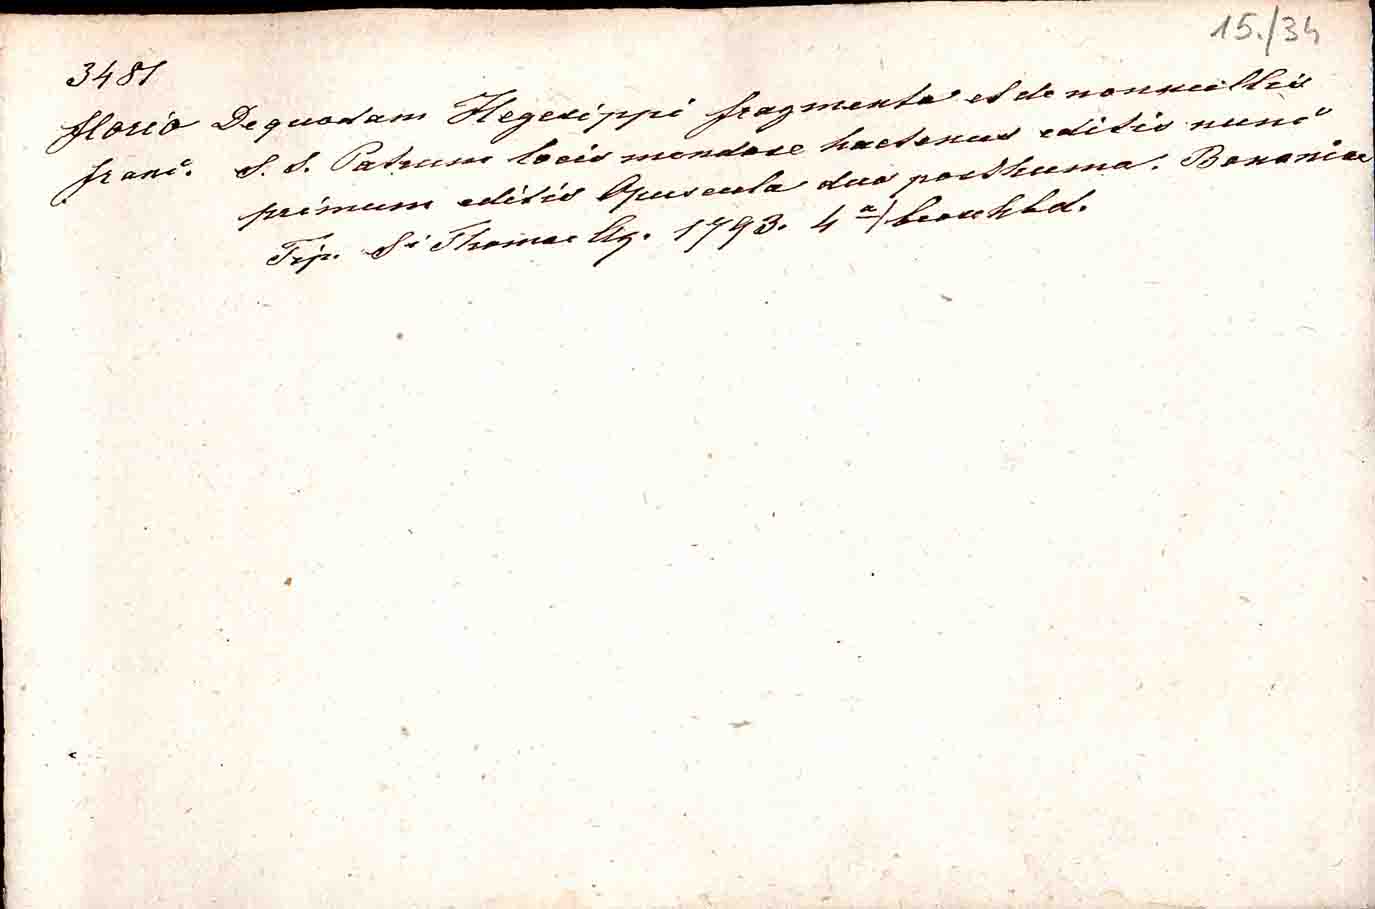 15./34
3481
Florio De quodam Hegesippi fragmento et de nonnullis
Franc. S. S. Patrum locis mendose hactenus editis nunc
primum editis Opuscula duo posthuma. Bononiae
Typ. Si Thomae Aq. 1793. 4 a)